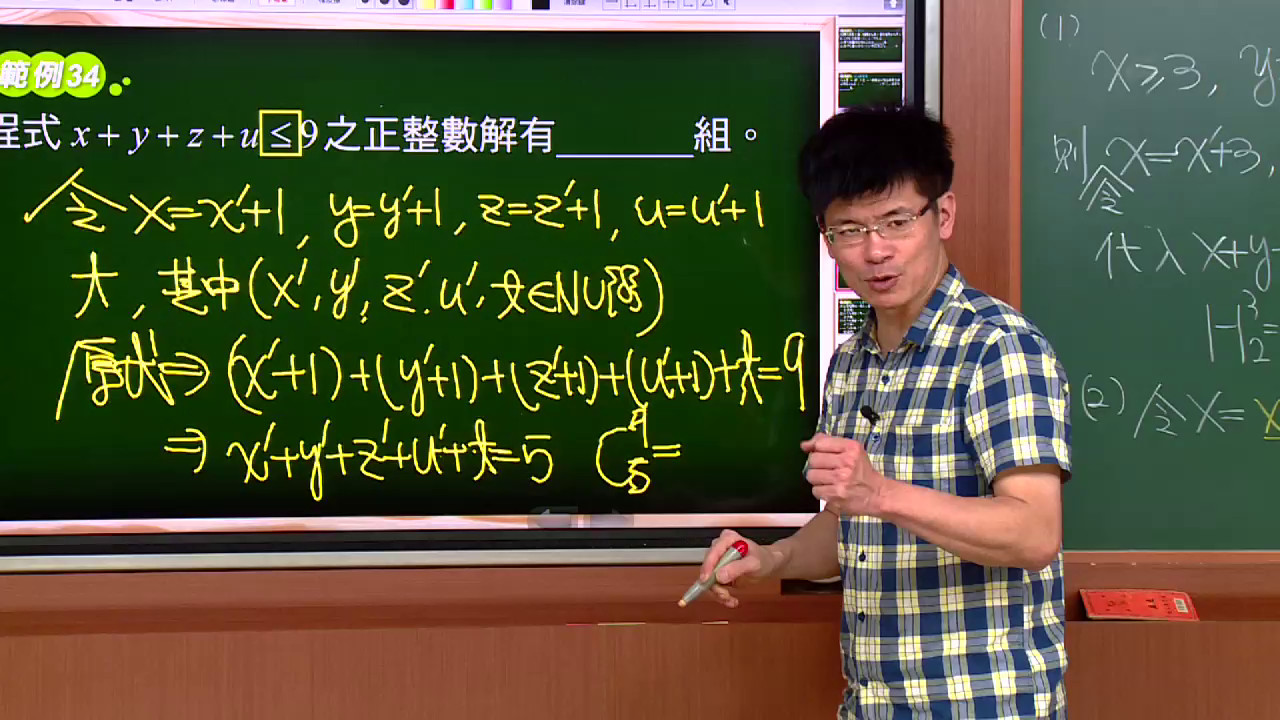 範例34
程式 x + y + z + u ≤ 9 之正整數解有______組。
令 x=x'+1, y=y'+1, z=z'+1, u=u'+1
大, 其中(x', y', z', u', t∈NU{0})
原式⇒(x'+1)+(y'+1)+(z'+1)+(u'+1)+t=9
⇒ x'+y'+z'+u'+t=5 C⁹₅=
(1)
x≥3, y
則令 x=x'+3,
代入 x+y
H³₂=
(2) 令 x= x